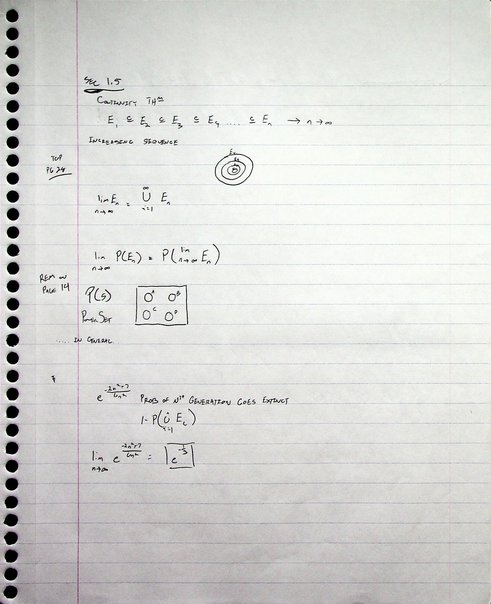 SEC 1.5
CONTINUITY THM
E1 ⊆ E2 ⊆ E3 ⊆ E4 .... ⊆ En → n→∞
INCREASING SEQUENCE
TOP
PG 24
lim n→∞ En = ∞ ∪ i=1 En
lim n→∞ P(En) = P(lim n→∞ En)
REM ON
PAGE 19
P(S)
POWER SET
A B
C D
.... IN GENERAL
PROB OF NTH GENERATION GOES EXTINCT
1 - P(∪ i=1 Ei)
lim n→∞